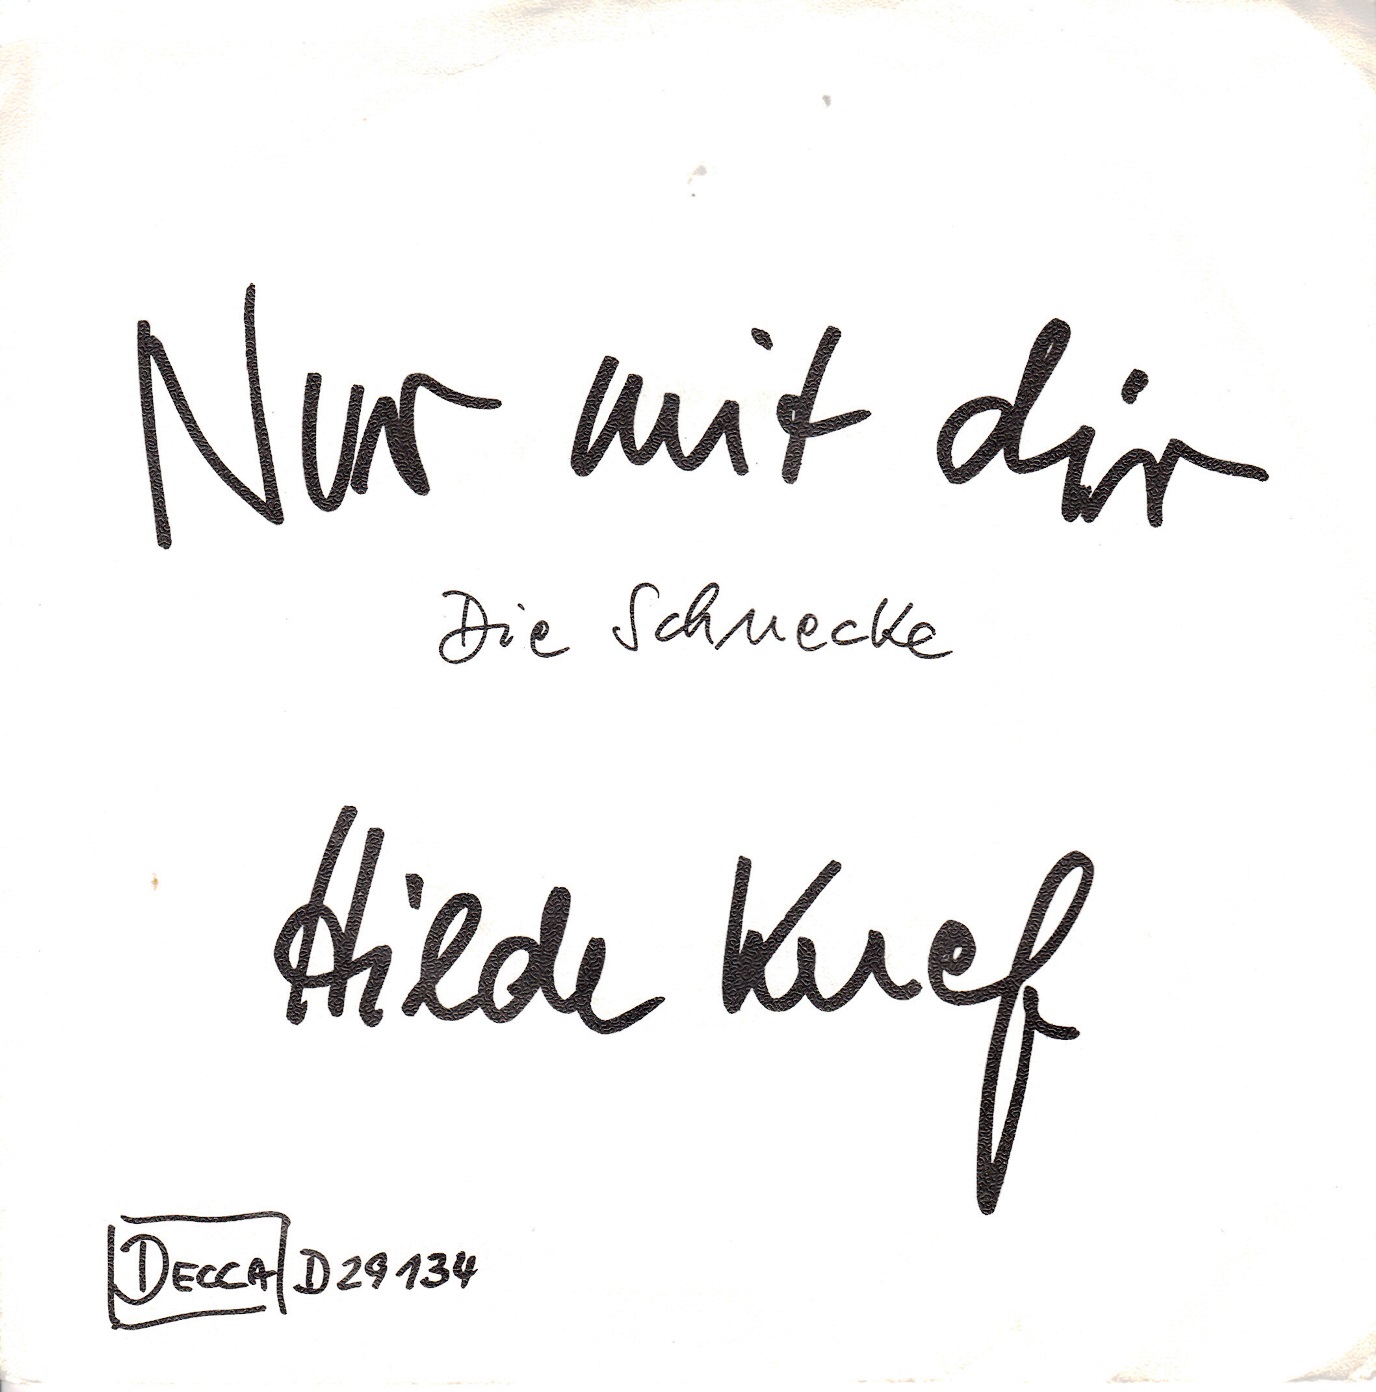 Nur mit dir
Die Schnecke
Hilde Knef
DECCA D 29 134